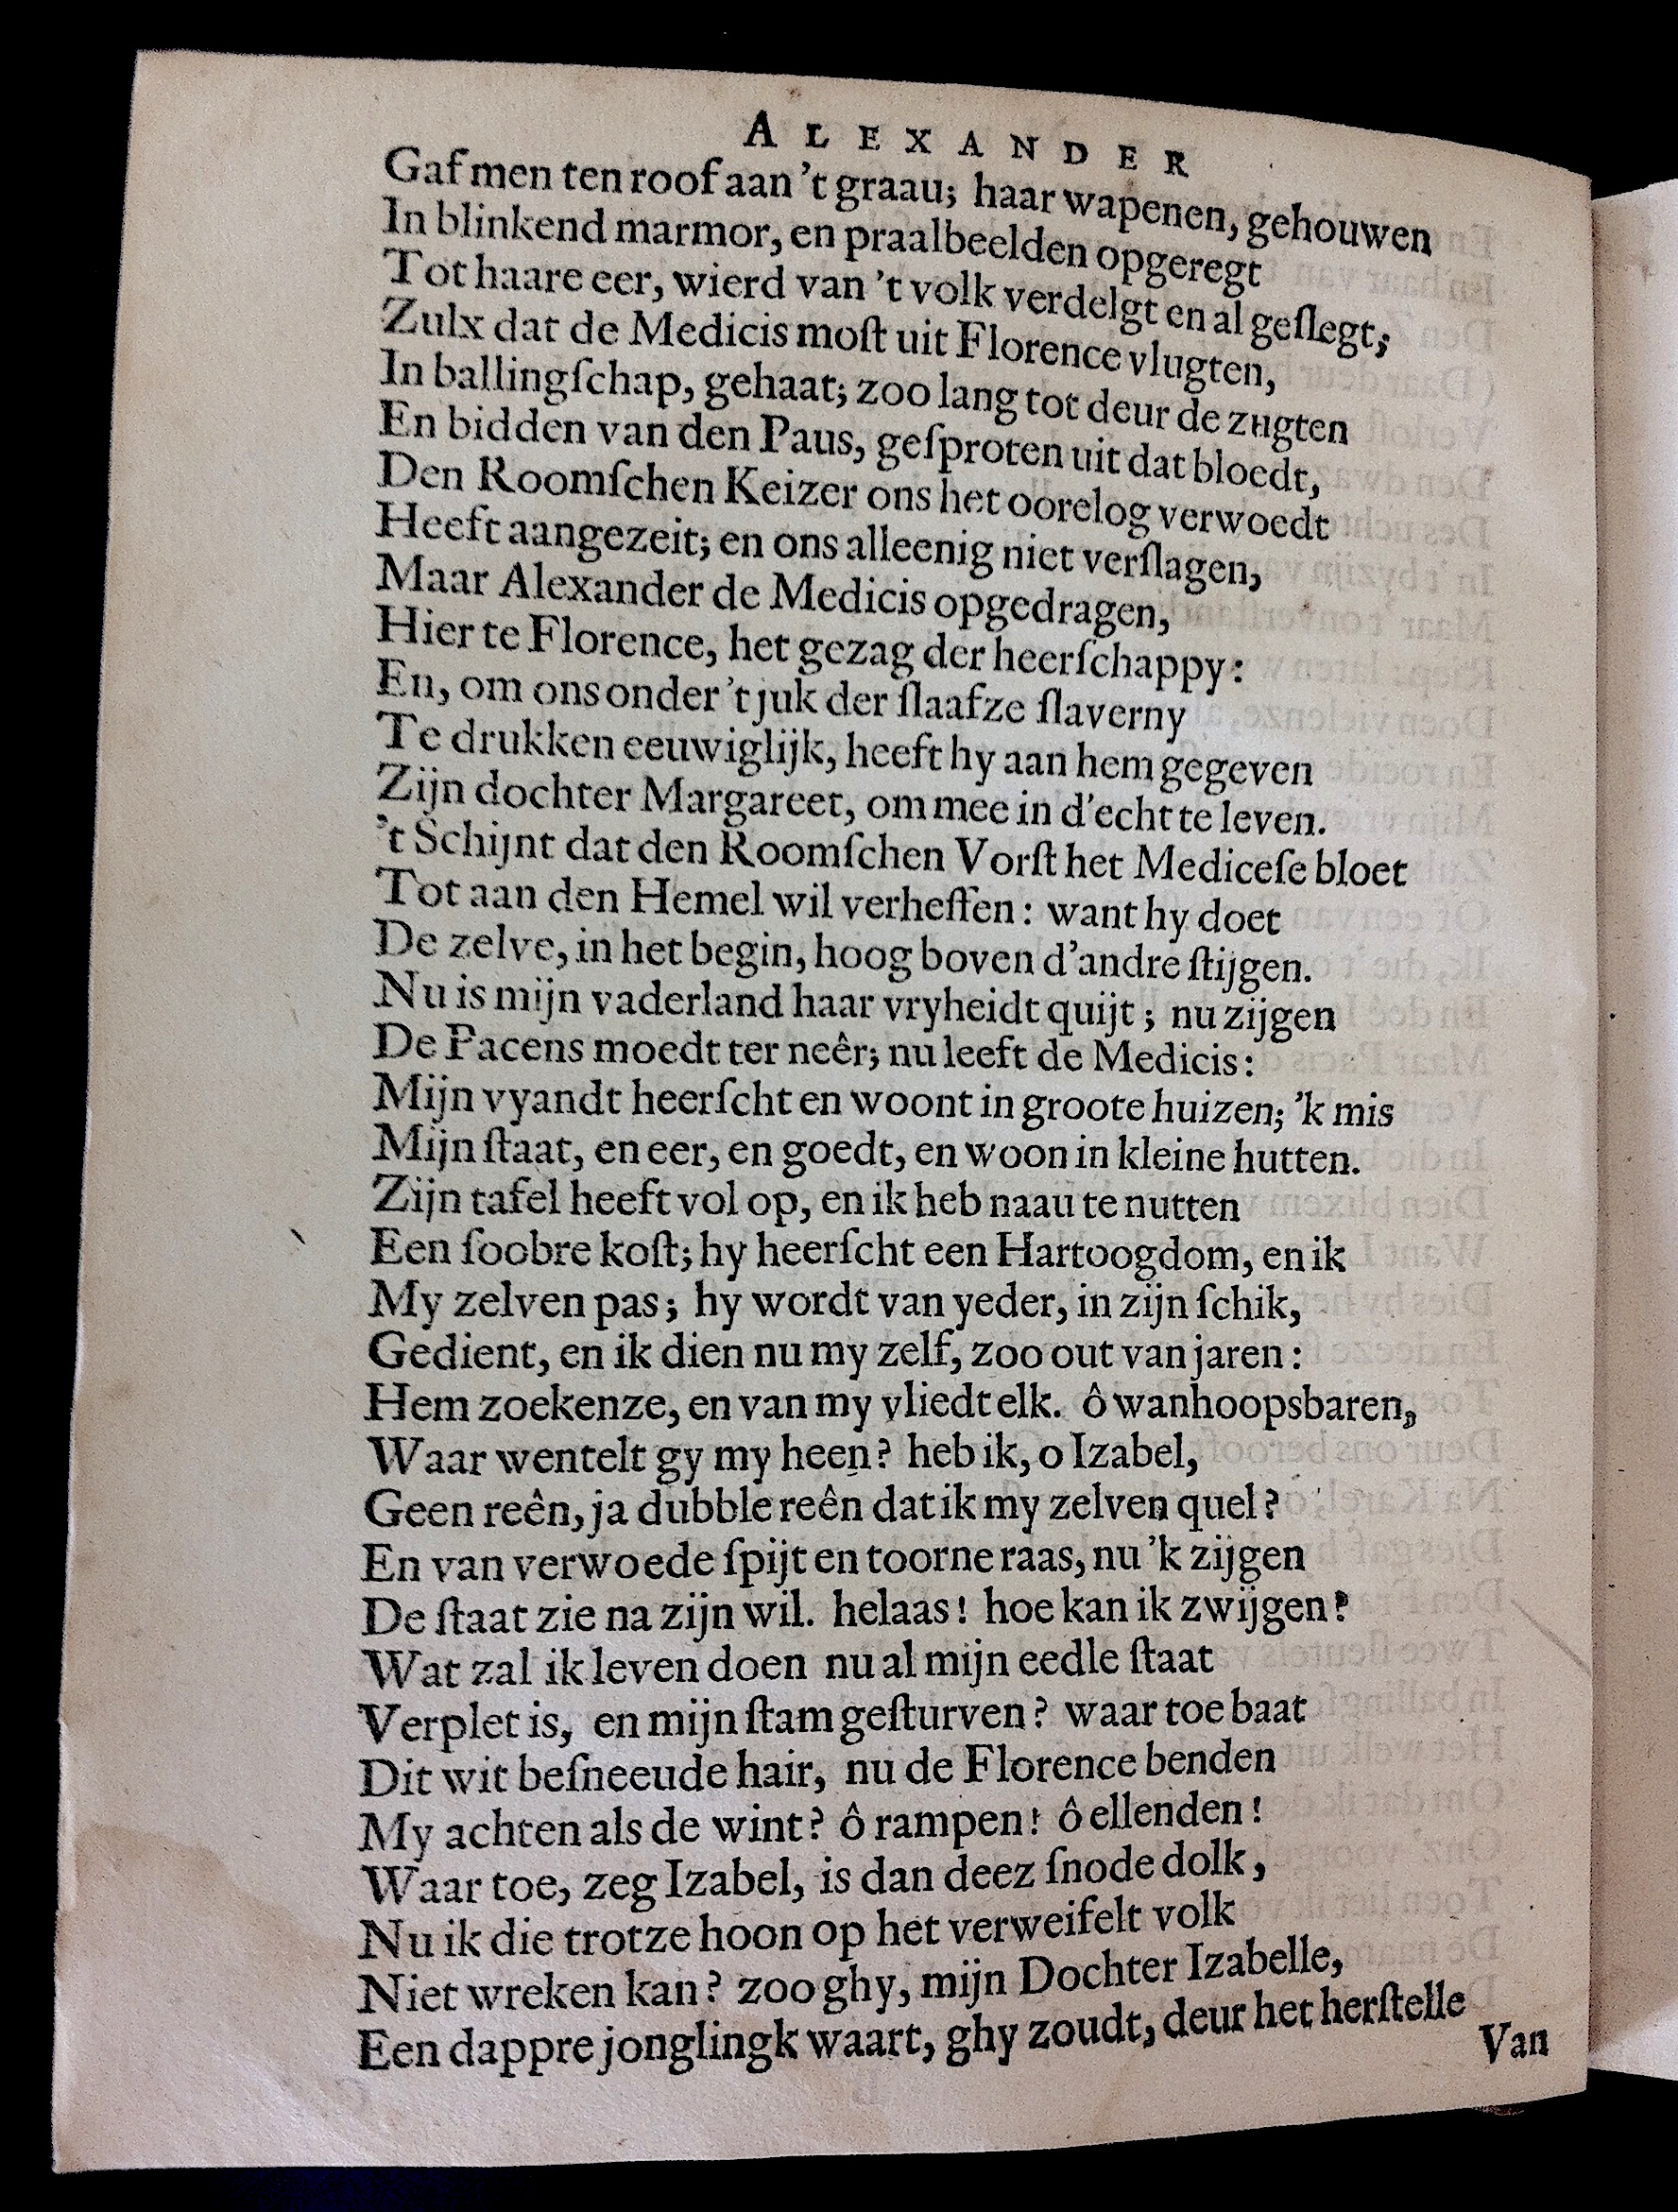 ALEXANDER
Gaf men ten roof aan 't graau; haar wapenen, gehouwen
In blinkend marmor, en praalbeelden opgeregt
Tot haare eer, wierd van 't volk verdelgt en al geſlegt;
Zulx dat de Medicis moſt uit Florence vlugten,
In ballingſchap, gehaat; zoo lang tot deur de zugten
En bidden van den Paus, geſproten uit dat bloedt,
Den Roomſchen Keizer ons het oorelog verwoedt
Heeft aangezeit; en ons alleenig niet verſlagen,
Maar Alexander de Medicis opgedragen,
Hier te Florence, het gezag der heerſchappy:
En, om ons onder 't juk der ſlaafze ſlaverny
Te drukken eeuwiglijk, heeft hy aan hem gegeven
Zijn dochter Margareet, om mee in d'echt te leven.
't Schijnt dat den Roomſchen Vorſt het Mediceſe bloet
Tot aan den Hemel wil verheffen: want hy doet
De zelve, in het begin, hoog boven d'andre ſtijgen.
Nu is mijn vaderland haar vryheidt quijt; nu zijgen
De Pacens moedt ter neêr; nu leeft de Medicis:
Mijn vyandt heerſcht en woont in groote huizen; 'k mis
Mijn ſtaat, en eer, en goedt, en woon in kleine hutten.
Zijn tafel heeft vol op, en ik heb naau te nutten
Een ſoobre koſt; hy heerſcht een Hartoogdom, en ik
My zelven pas; hy wordt van yeder, in zijn ſchik,
Gedient, en ik dien nu my zelf, zoo out van jaren:
Hem zoekenze, en van my vliedt elk. ô wanhoopsbaren,
Waar wentelt gy my heen? heb ik, o Izabel,
Geen reên, ja dubble reên dat ik my zelven quel?
En van verwoede ſpijt en toorne raas, nu 'k zijgen
De ſtaat zie na zijn wil. helaas! hoe kan ik zwijgen?
Wat zal ik leven doen nu al mijn eedle ſtaat
Verplet is, en mijn ſtam geſturven? waar toe baat
Dit wit beſneeude hair, nu de Florence benden
My achten als de wint? ô rampen! ô ellenden!
Waar toe, zeg Izabel, is dan deez ſnode dolk,
Nu ik die trotze hoon op het verweifelt volk
Niet wreken kan? zoo ghy, mijn Dochter Izabelle,
Een dappre jonglingk waart, ghy zoudt, deur het herſtelle
Van